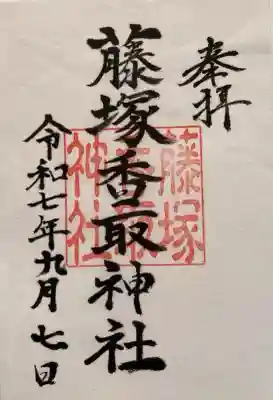 奉拝
藤塚香取神社
令和七年九月七日
藤塚
香取
神社